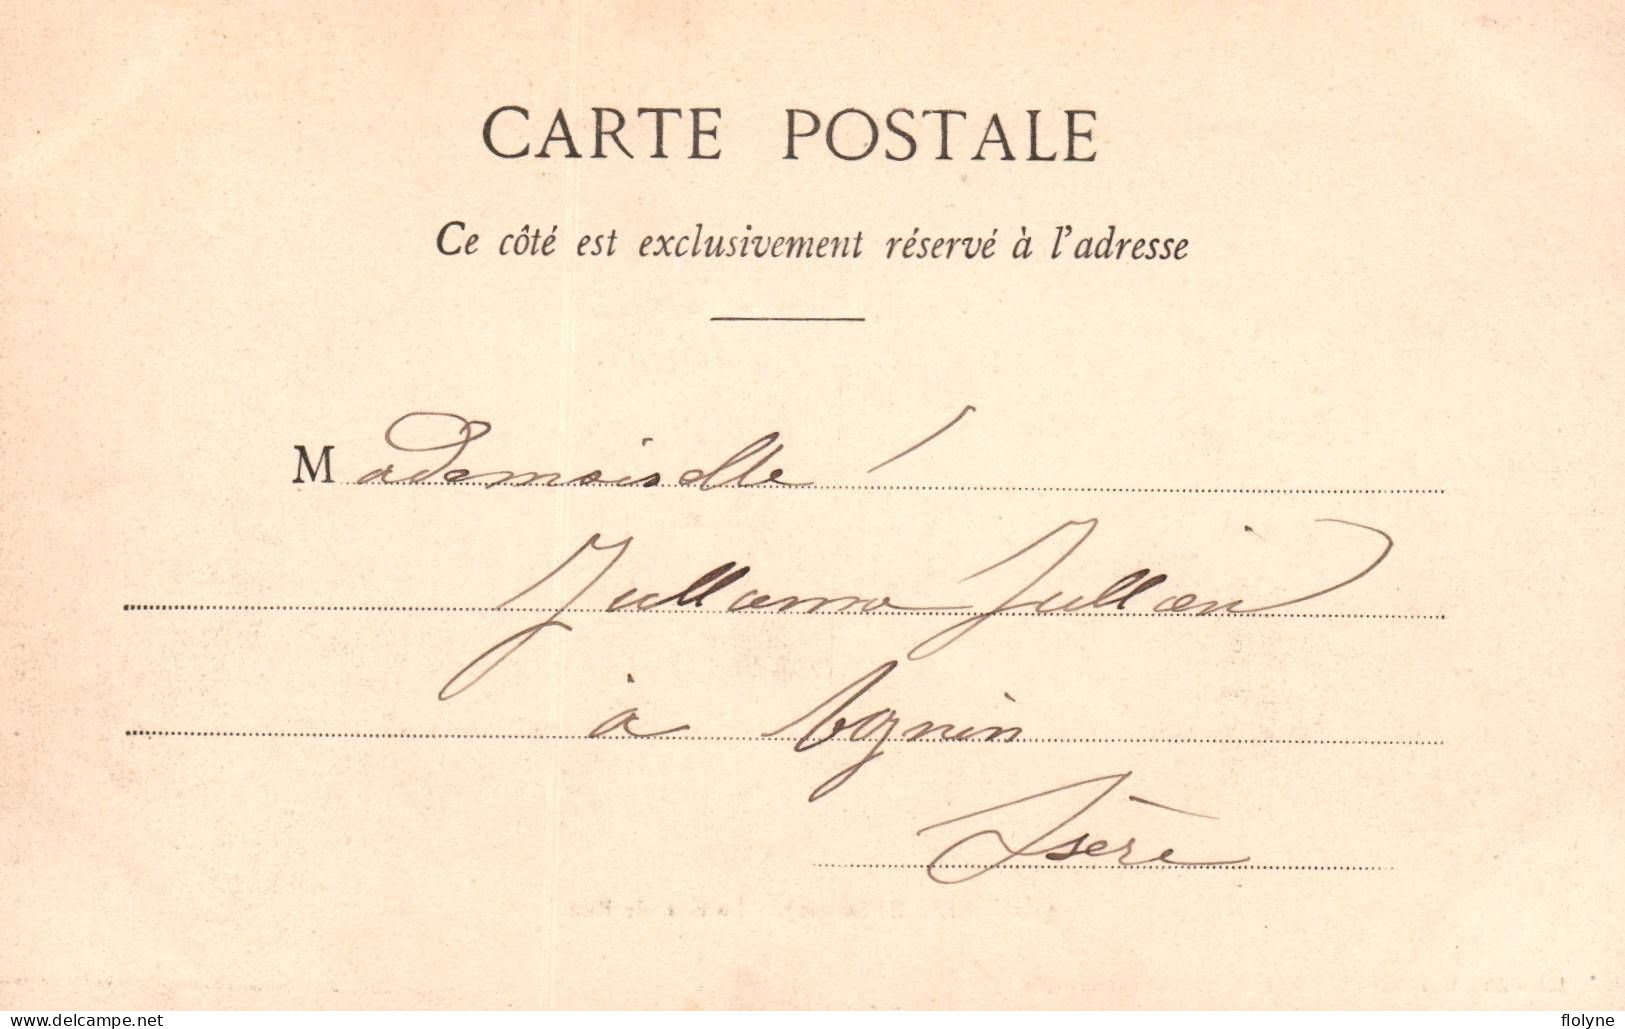 CARTE POSTALE
Ce côté est exclusivement réservé à l'adresse
Mademoiselle
Jullien
à Agnin
Isère
https://www.delcampe.net
flolyne